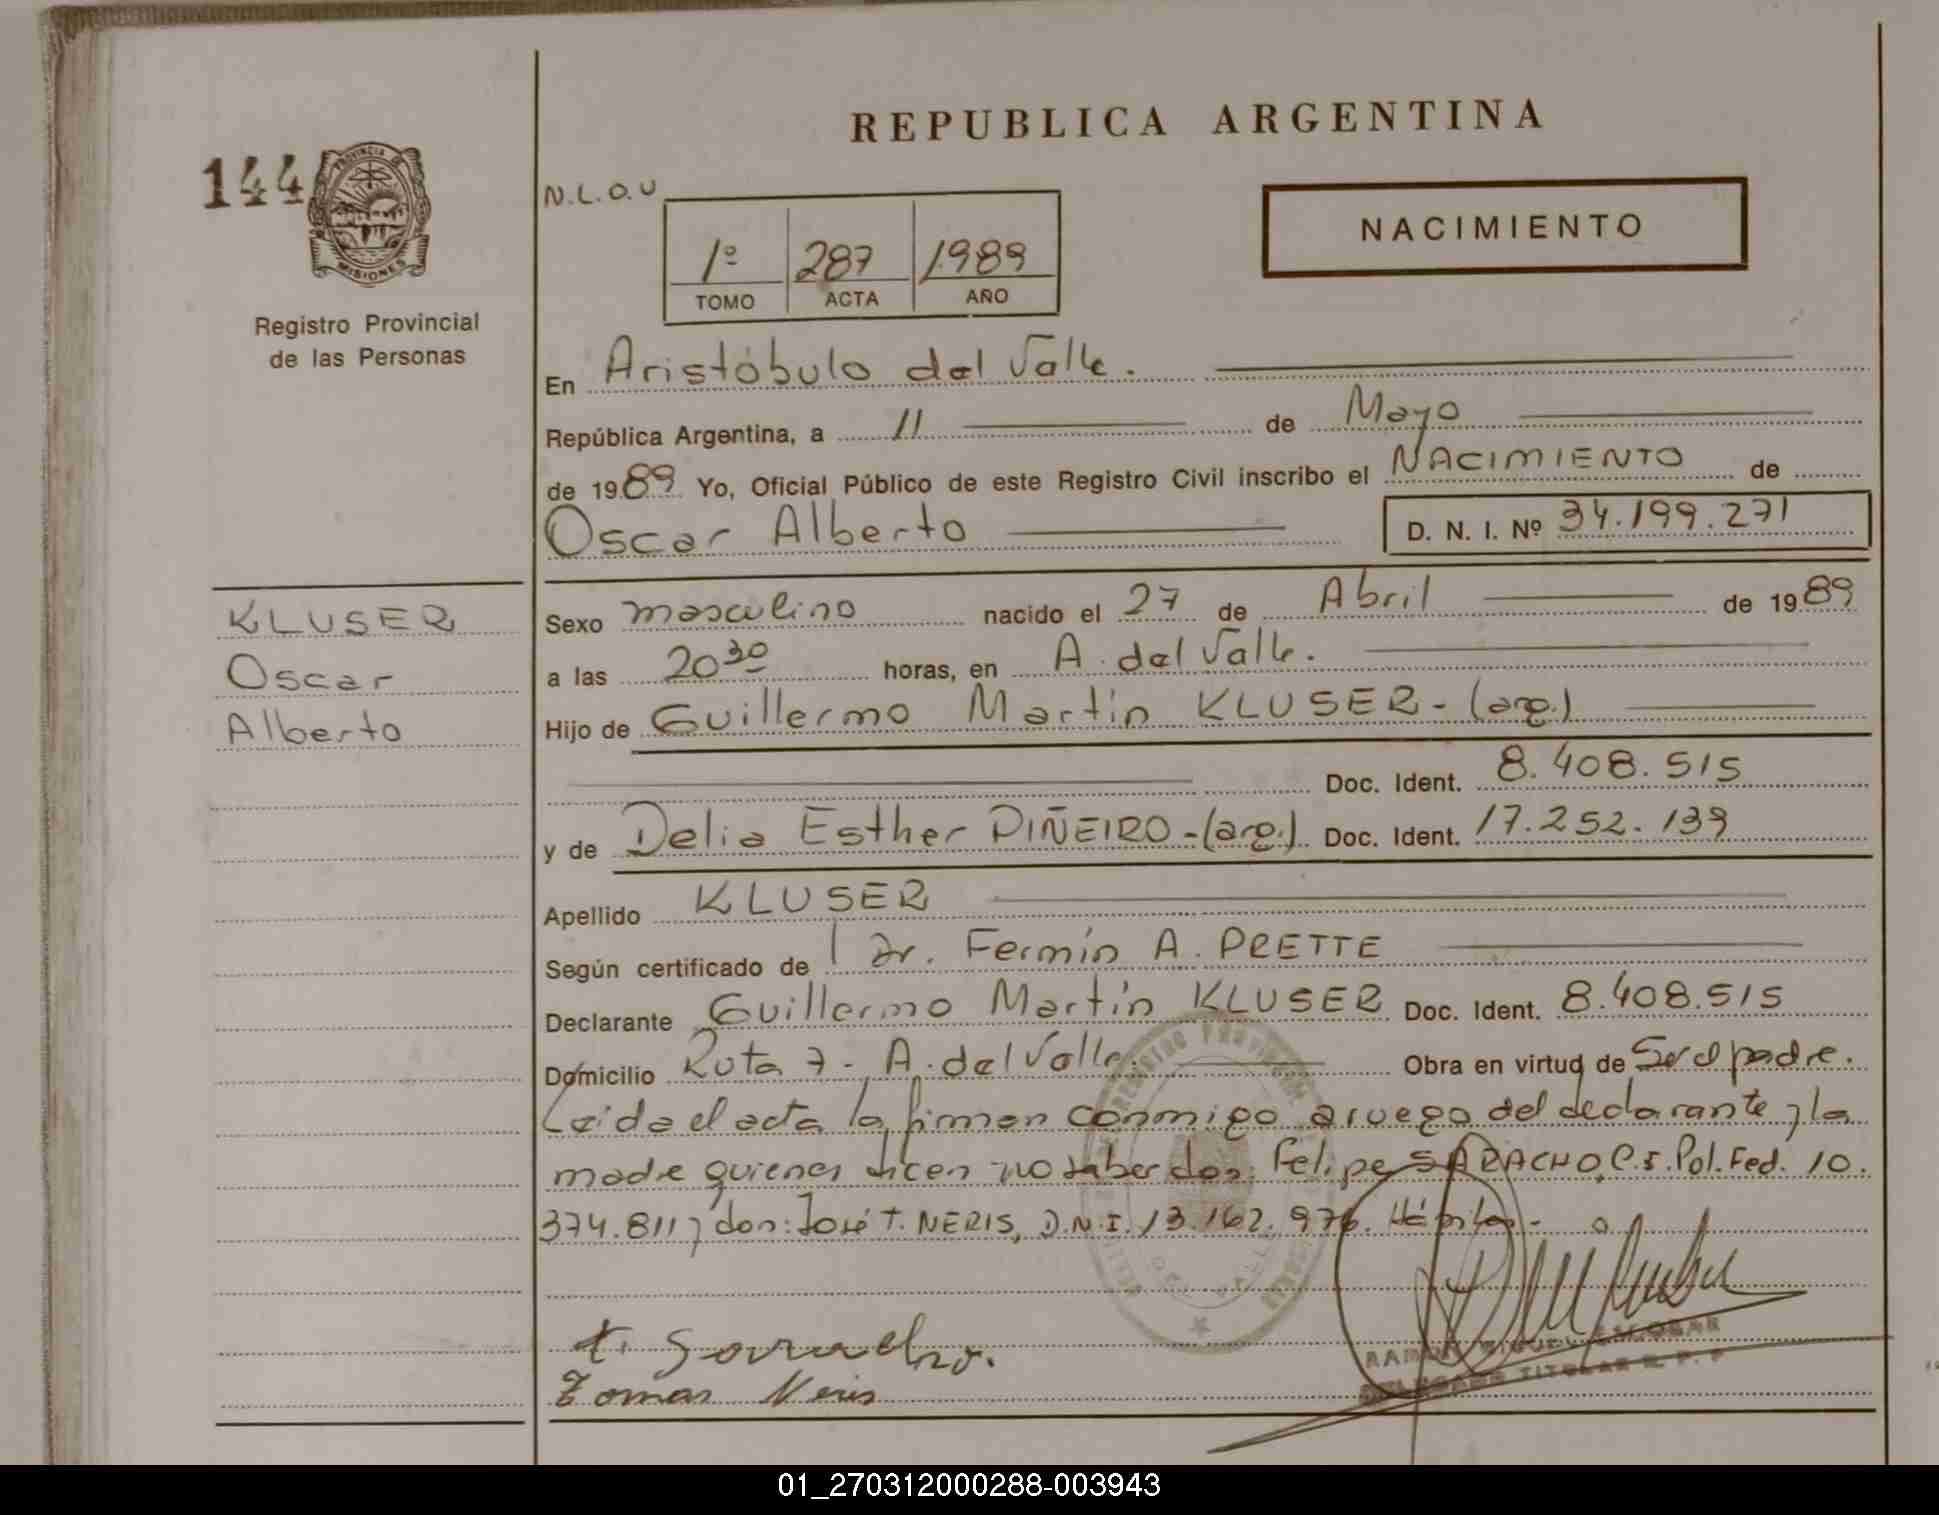 REPUBLICA ARGENTINA
144
PROVINCIA DE
MISIONES
Registro Provincial
de las Personas
N.L.O.U
NACIMIENTO
1º 287 1989
TOMO ACTA AÑO
En Aristóbulo del Valle.
República Argentina, a 11 de Mayo
de 1989 Yo, Oficial Público de este Registro Civil inscribo el NACIMIENTO de
Oscar Alberto D. N. I. Nº 34.199.271
KLUSER
Oscar
Alberto
Sexo masculino nacido el 27 de Abril de 1989
a las 20 30 horas, en A. del Valle.
Hijo de Guillermo Martín KLUSER - (arg.)
Doc. Ident. 8.408.515
y de Delia Esther PIÑEIRO - (arg.) Doc. Ident. 17.252.139
Apellido KLUSER
Según certificado de Dr. Fermín A. PRETTE
Declarante Guillermo Martín KLUSER Doc. Ident. 8.408.515
Domicilio Ruta 7 - A. del Valle. Obra en virtud de Ser el padre.
Leida el acta la firman conmigo a ruego del declarante y la
madre quienes dicen no saber don: Felipe SARACHO, C.I. Pol. Fed. 10.
374.811 y don: José T. NERIS, D.N.I. 13.162.976. Hábiles.-
DEL VALLE
Tomas Neris
RAMON MIGUEL ESCOBAR
DELEGADO TITULAR R. P. P
01_270312000288-003943